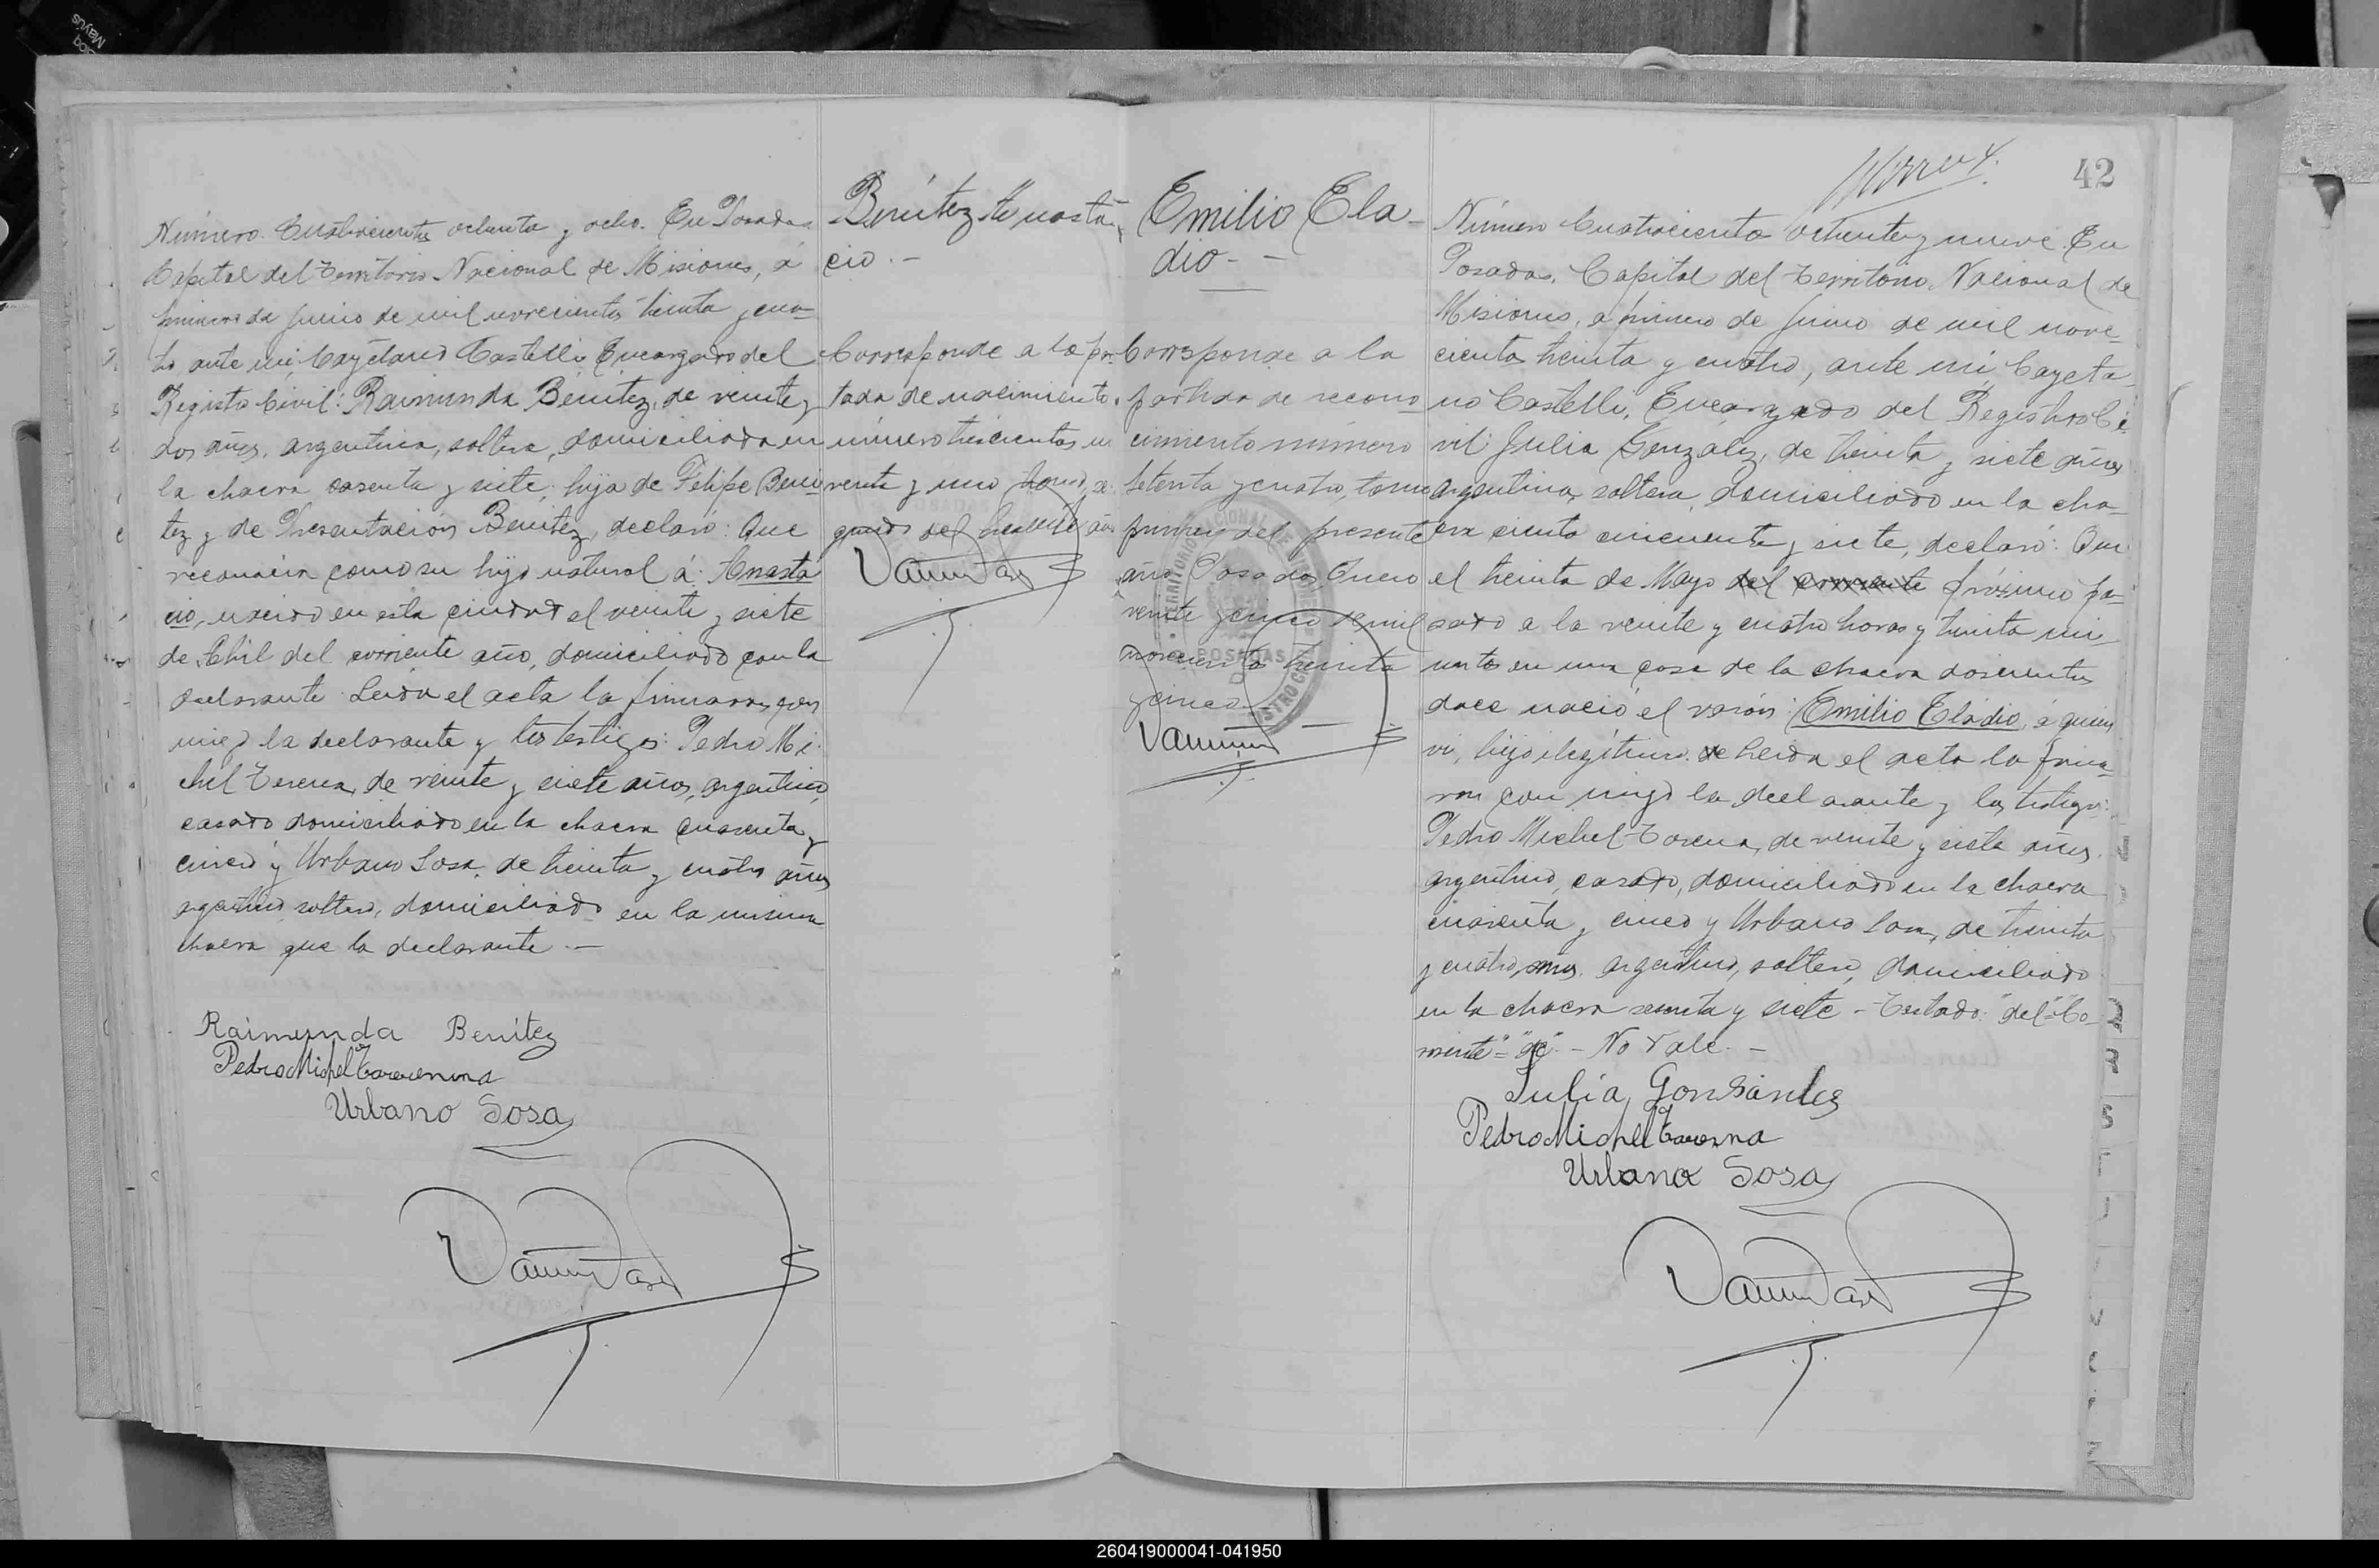 Número Cuatrocientos ochenta y ocho. En Posadas
Capital del Territorio Nacional de Misiones, á
primero de Junio de mil novecientos treinta y cua-
tro ante mí Cayetano Castelli, Encargado del
Registro Civil: Raimunda Benítez, de veinte y
dos años, argentina, soltera, domiciliada en
la chacra sesenta y siete, hija de Felipe Bení
tez y de Presentación Benítez, declaró: Que
reconocía como su hijo natural á: Anasta
cio, nacido en esta ciudad el veinte y siete
de Abril del corriente año, domiciliado con la
declarante. Leida el acta la firmaron con
migo la declarante y los testigos: Pedro Mi
chel de veinte y siete años, argentino,
casado domiciliado en la chacra cuarenta y
cinco y Urbano Sosa, de treinta y cuatro años
argentino soltero, domiciliado en la misma
chacra que la declarante.—
Raimunda Benítez
Pedro Michel
Urbano Sosa
Benítez Anasta
cio.—
Corresponde a la par
tida de nacimiento
número trescientos
veinte y uno tomo se
gundo del presente año
Emilio Ela-
dio.—
Corresponde a la
partida de recono
cimiento número
setenta y cuatro, tomo
primero del presente
año Posadas, Enero
veinte y cinco de mil
novecientos treinta
y cinco
POSADAS
42
Número Cuatrocientos ochenta y nueve. En
Posadas, Capital del Territorio Nacional de
Misiones, a primero de Junio de mil nove
cientos treinta y cuatro, ante mí Cayeta
no Castelli, Encargado del Registro Ci
vil: Julia González, de treinta y siete años
argentina, soltera, domiciliado en la cha-
cra ciento cincuenta y siete, declaró: Que
el treinta de Mayo del corriente próximo pa-
sado a la veinte y cuatro horas y treinta mi
nutos en una casa de la chacra doscientos
doce nació el varón: Emilio Eladio, á quien
vi, hijo ilegítimo. de Leida el acta la firma-
ron con migo la declarante y los testigos:
Pedro Michel de veinte y siete años,
argentino, casado, domiciliado en la chacra
cuarenta y cinco y Urbano Sosa, de treinta
y cuatro años, argentino, soltero, domiciliado
en la chacra sesenta y siete - Testado: "del" "Co-
rriente" = "de" - No Vale.—
Julia Gonsáules
Pedro Michel
Urbano Sosa
260419000041-041950